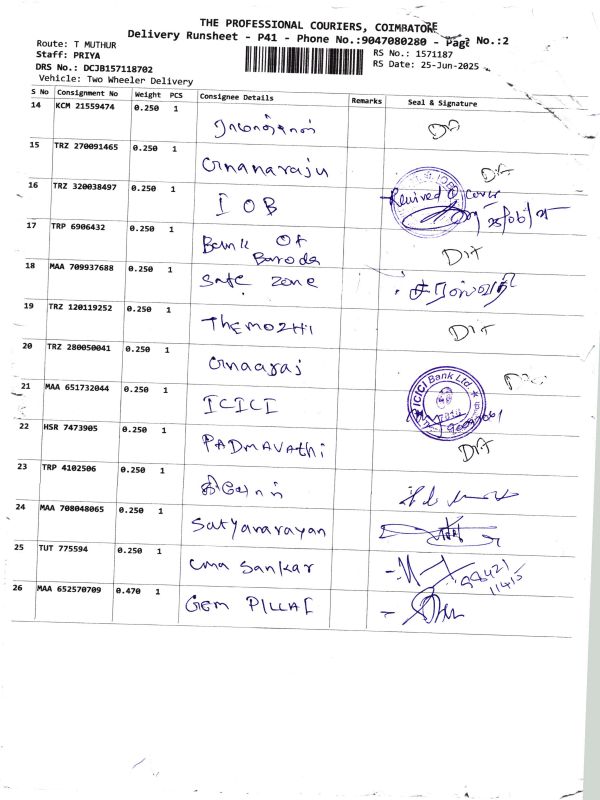 THE PROFESSIONAL COURIERS, COIMBATORE
Delivery Runsheet - P41 - Phone No.:9047080280 - Page No.:2
Route: T MUTHUR
RS No.: 1571187
Staff: PRIYA
RS Date: 25-Jun-2025
DRS No.: DCJB157118702
Vehicle: Two Wheeler Delivery
S No Consignment No Weight PCS Consignee Details Remarks Seal & Signature
14 KCM 21559474 0.250 1
15 TRZ 270091465 0.250 1 Gnanaraju
16 TRZ 320038497 0.250 1 IOB 25/06/25
17 TRP 6906432 0.250 1 Bank Of Baroda
18 MAA 709937688 0.250 1 Safe zone
19 TRZ 120119252 0.250 1 Themozhi
20 TRZ 280050041 0.250 1
21 MAA 651732044 0.250 1 ICICI ICICI Bank Ltd.
22 HSR 7473905 0.250 1 PADMAVathi
23 TRP 4102506 0.250 1
24 MAA 708048065 0.250 1 Satyanarayan
25 TUT 775594 0.250 1 Uma Sankar 98421 11415
26 MAA 652570709 0.470 1 GEM PILLAI